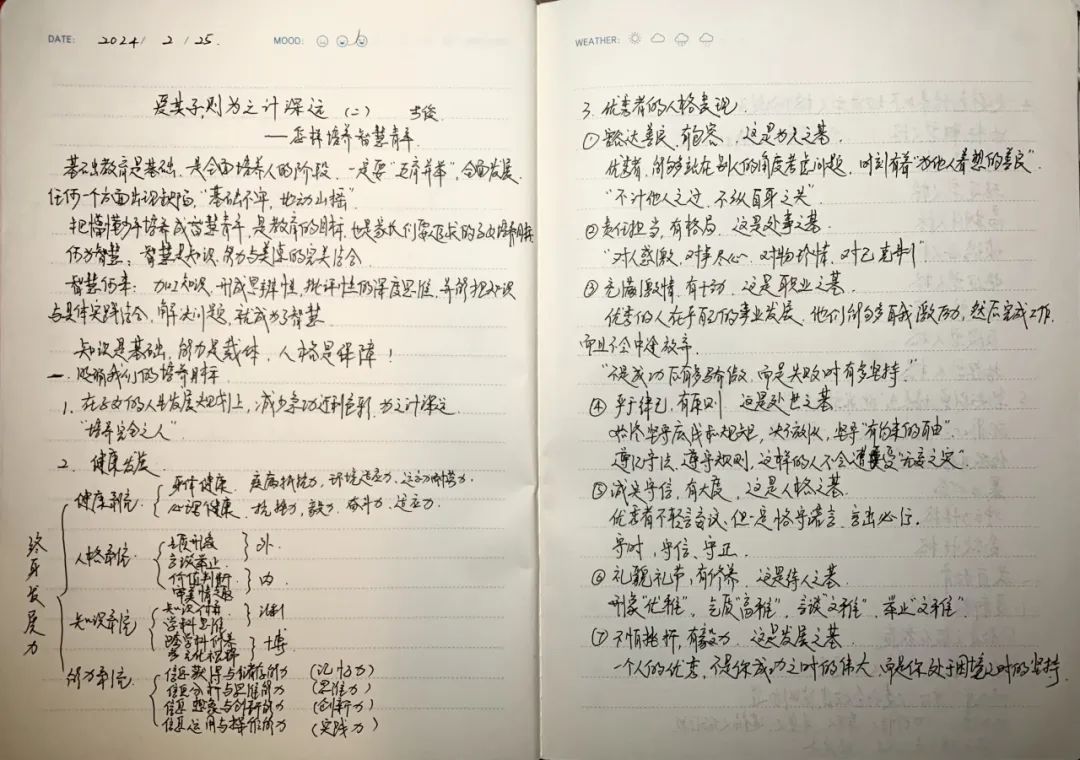 DATE: 2024 / 2 / 25.
MOOD:
爱其子,则为之计深远 (二)
——怎样培养智慧青年
基础教育是基础,是全面培养人的阶段,一定要"五育并举",全面发展.
任何一个方面出现缺陷,"基础不牢,地动山摇"
把懵懂少年培养成智慧青年,是教育的目标,也是家长们要追求的子女培养目标
何为智慧:智慧是知识、能力与美德的完美结合.
智慧何来:加工知识,形成思辨性,批评性的深度思维,并能把知识
与具体实践结合,解决问题,就成为了智慧
知识是基础,能力是载体,人格是保障!
一、明确我们的培养目标
1. 在子女的人生发展规划上,减少急功近利色彩,为之计深远
"培养完全之人"
2. 健康发展
终身发展力
健康素养
身体健康 疾病抵抗力,环境适应力,运动耐劳力
心理健康 抗挫力,毅力,奋斗力,适应力.
人格素养
气质形成
言谈举止
外.
价值判断
审美情趣
内
知识素养
学科思维
跨学科
多元化
博
能力素养
信息获得与储存能力 (记忆力)
信息分析与思维能力 (思维力)
信息想象与创新能力 (创新力)
信息运用与操作能力 (实践力)
WEATHER:
3. 优秀者的人格表现
① 豁达善良,有包容,这是为人之基.
优秀者,能够站在别人的角度考虑问题,时刻有着"为他人着想的善良"
"不计他人之过,不纵自身之失"
② 责任担当,有格局,这是处事之基
"对人感激,对事尽心,对物珍惜,对己克制"
③ 充满激情,有干劲,这是职业之基.
优秀的人在乎自己的事业发展,他们能够自我激励,然后完成工作
而且不会中途放弃.
"不是成功后有多骄傲,而是失败时有多坚持."
④ 严于律己,有原则 这是处世之基
始终坚守底线和规矩,决不放纵,坚守"有约束的自由"
遵纪守法,遵守规则,这样的人不会遭受"无妄之灾".
⑤ 诚实守信,有大度,这是人格之基.
优秀者不轻言妄议,但一定恪守诺言,言出必行.
守时,守信,守正.
⑥ 礼貌礼节,有修养,这是待人之基.
形象"优雅",气质"高雅",言谈"文雅",举止"文雅"
⑦ 不惧挫折,有毅力,这是发展之基.
一个人的优秀,不是你成功之时的伟大,而是你处于困境之时的坚持.